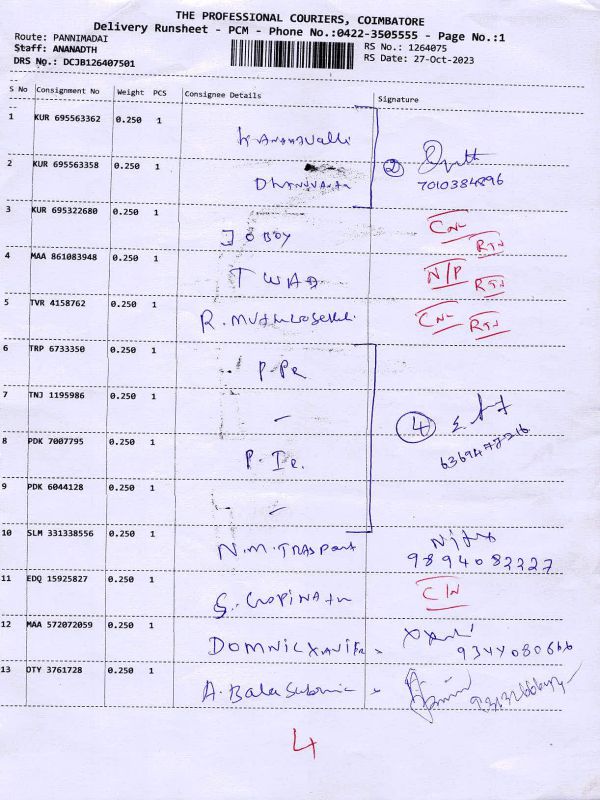 THE PROFESSIONAL COURIERS, COIMBATORE
Delivery Runsheet - PCM - Phone No.:0422-3505555 - Page No.:1
Route: PANNIMADAI
RS No.: 1264075
Staff: ANANADTH
RS Date: 27-Oct-2023
DRS No.: DCJB126407501
S No Consignment No Weight PCS Consignee Details Signature
1 KUR 695563362 0.250 1
2 KUR 695563358 0.250 1
② 7010384896
3 KUR 695322680 0.250 1 JOBOY RTN
4 MAA 861083948 0.250 1 TWAD N/P RTN
5 TVR 4158762 0.250 1 R. RTN
6 TRP 6733350 0.250 1
7 TNJ 1195986 0.250 1 -
④
8 PDK 7007795 0.250 1
9 PDK 6044128 0.250 1 -
10 SLM 331338556 0.250 1 N.M. TRASPORT
11 EDQ 15925827 0.250 1 G. GOPINATH
12 MAA 572072059 0.250 1 DOMNIC XAVIER
13 OTY 3761728 0.250 1 A. Bala
4